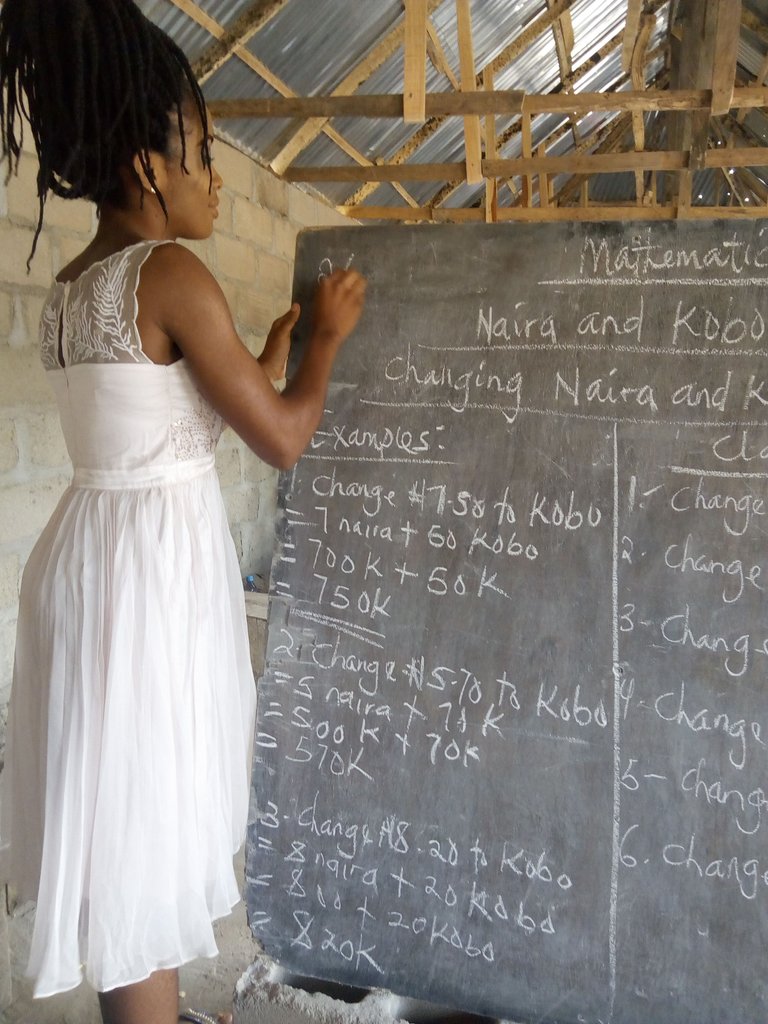 Mathematic
Naira and Kobo
Changing Naira and K
Examples:
1. Change ₦7.50 to Kobo
= 7 naira + 50 Kobo
= 700K + 50K
= 750K
2. Change ₦5.70 to Kobo
= 5 naira + 70 K
= 500K + 70K
= 570K
3. Change ₦8.20 to Kobo
= 8 naira + 20 Kobo
= 800 + 20Kobo
= 820K
Cla
1- Change
2. Change
3- Chang
4- Change
5- Chang
6. Change